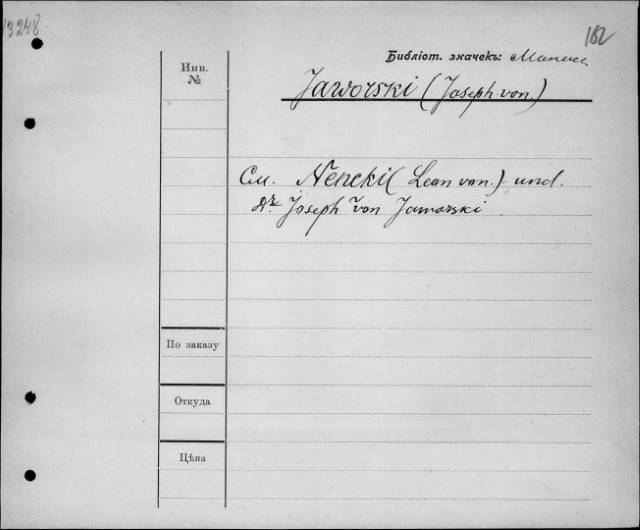 13248.
162
Библіот. значекъ:
Инв.
№
Jaworski (Joseph von.)
См. Nencki (Leon von.) und.
Dr. Joseph von Jaworski.
По заказу
Откуда
Цѣна